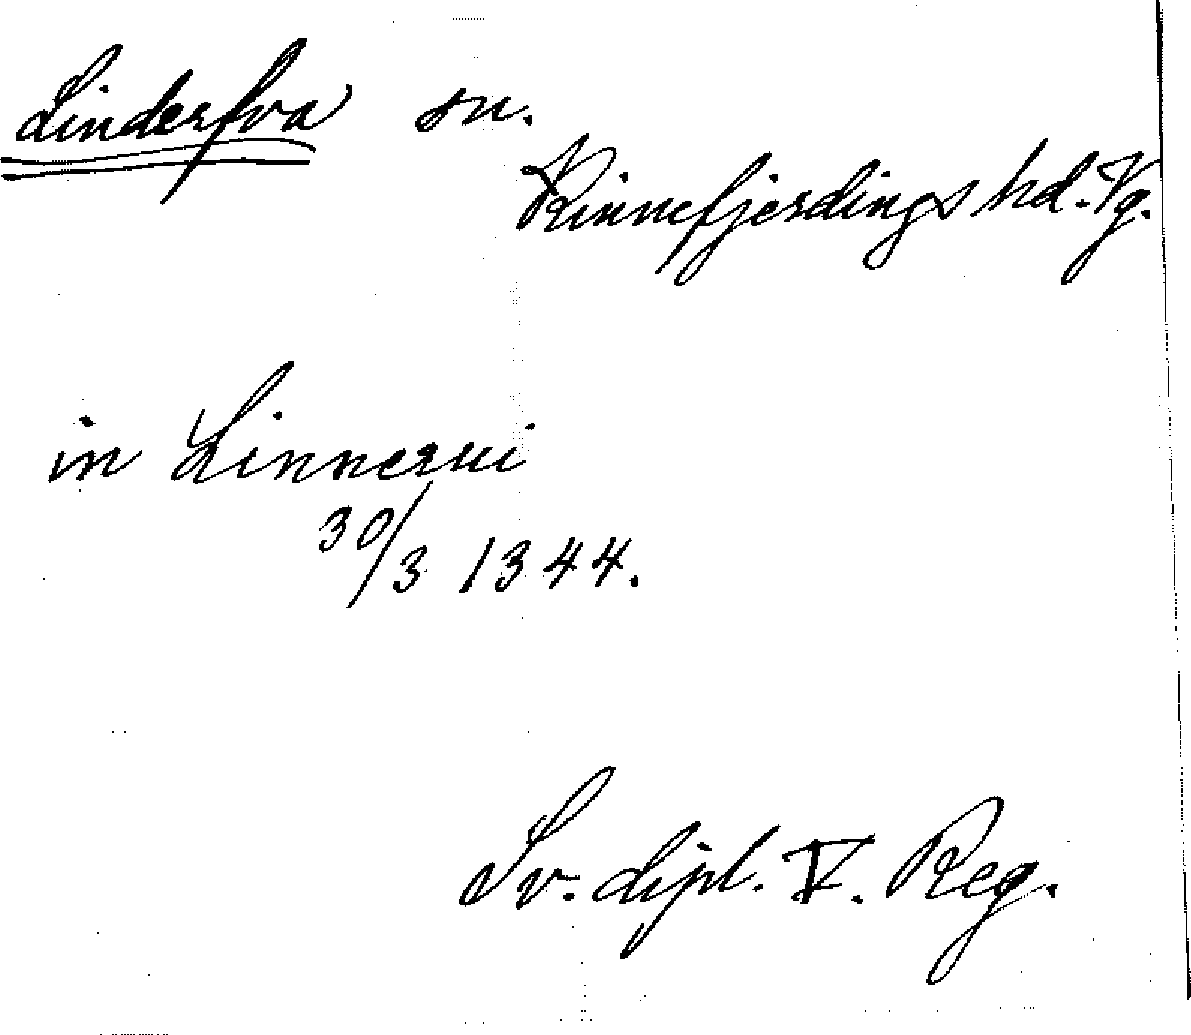 Linderfva sn.
Kinnefjerdings hd. Vg.
in Linnerui
30/3 1344.
Sv. dipl. V. Reg.